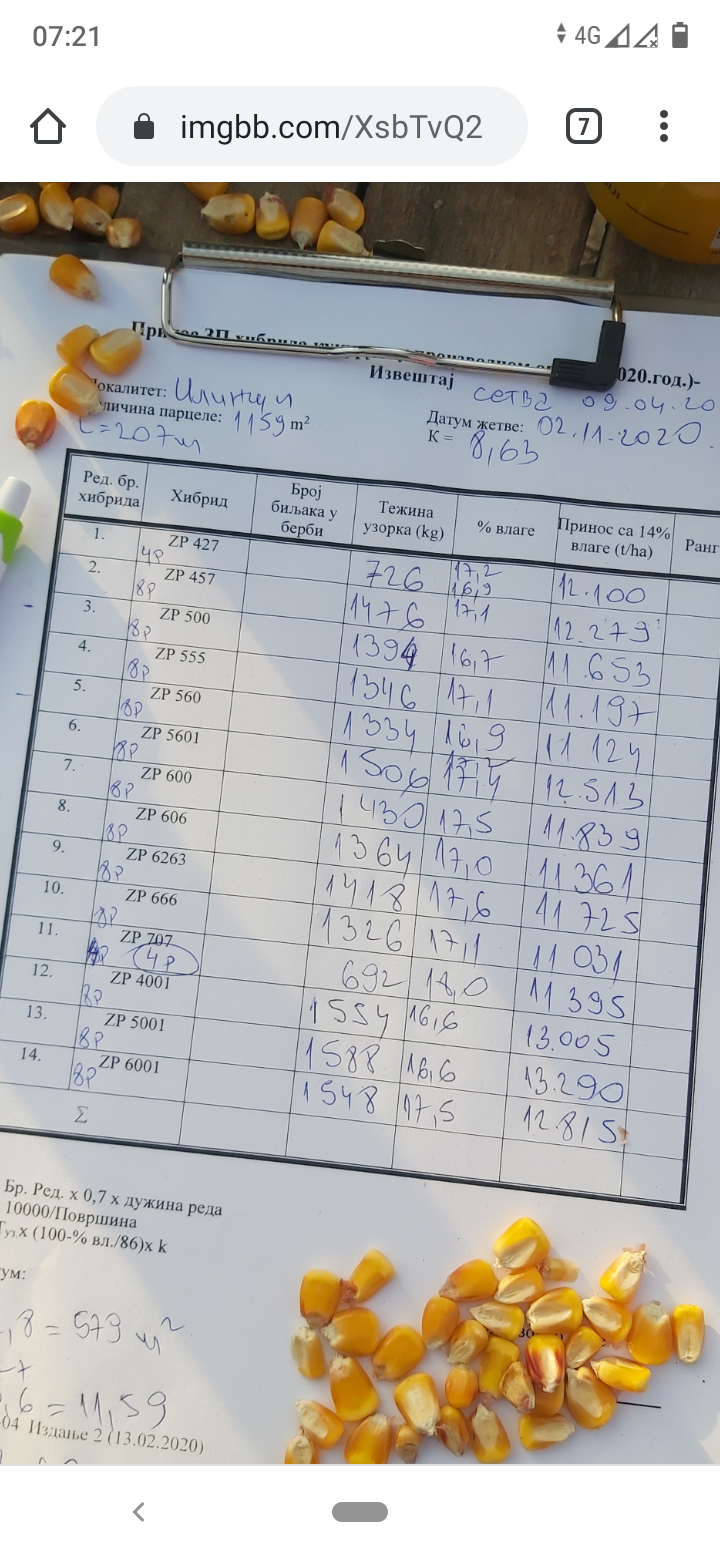 07:21
4G
imgbb.com/XsbTvQ2
7
020.год.)-
Извештај
сетва 09.04.20
локалитет: Илинци
личина парцеле: 1159 m²
Датум жетве: 02.11.2020.
L=207m
K = 8,63
Ред. бр. хибрида Хибрид Број биљака у берби Тежина узорка (kg) % влаге Принос са 14% влаге (t/ha) Ранг
1. 4р ZP 427 726 17,2 12.100
2. 8р ZP 457 1476 16,9 17,1 12.279
3. 8р ZP 500 1394 16,7 11.653
4. 8р ZP 555 1346 17,1 11.197
5. 8р ZP 560 1334 16,9 11 124
6. 8р ZP 5601 1506 17,4 12.513
7. 8р ZP 600 1430 17,5 11.839
8. 8р ZP 606 1364 17,0 11 361
9. 8р ZP 6263 1418 17,6 11 725
10. 8р ZP 666 1326 17,1 11 031
11. ZP 707 4р 692 18,0 11 395
12. 8р ZP 4001 1554 16,6 13.005
13. 8р ZP 5001 1588 16,6 13.290
14. 8р ZP 6001 1548 17,5 12.815
Σ
Бр. Ред. x 0,7 x дужина реда
10000/Површина
x (100-% вл./86)x k
ум:
,8 = 579 m²
,6 = 11,59
04 Издање 2 (13.02.2020)